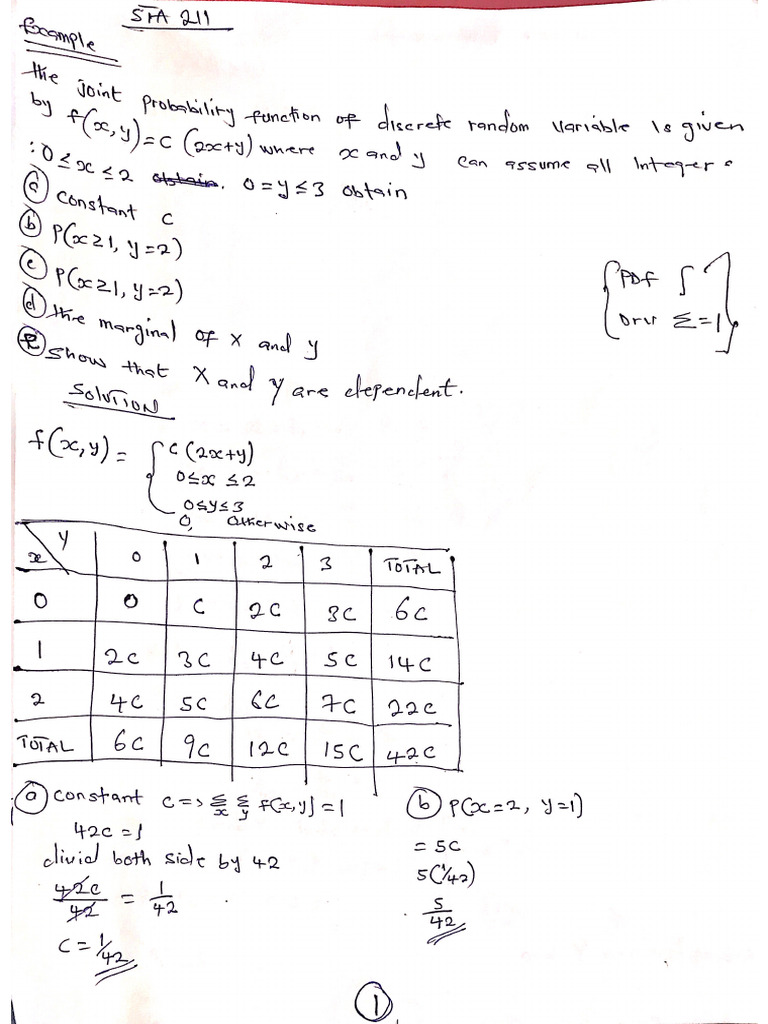 STA 211
Example
the joint probability function of discrete random variable is given
by f(x,y)=c (2x+y) where x and y can assume all Integers
: 0≤x≤2 obtain. 0=y≤3 obtain
(a) constant c
(b) P(x≥1, y=2)
(c) P(x≥1, y=2)
(d) the marginal of x and y
(e) show that X and Y are dependent.
{ PDF ∫ ]
{ Drv Σ=1 }
SOLUTION
f(x,y) = { c (2x+y)
0≤x ≤2
0≤y≤3
0, otherwise
x \ y | 0 | 1 | 2 | 3 | TOTAL
0 | 0 | C | 2C | 3C | 6C
1 | 2C | 3C | 4C | 5C | 14C
2 | 4C | 5C | 6C | 7C | 22C
TOTAL | 6C | 9C | 12C | 15C | 42C
(a) constant c => Σx Σy f(x,y) = 1
42C = 1
divid both side by 42
42C/42 = 1/42
C = 1/42
(b) P(x=2, y=1)
= 5C
5(1/42)
5/42
(1)